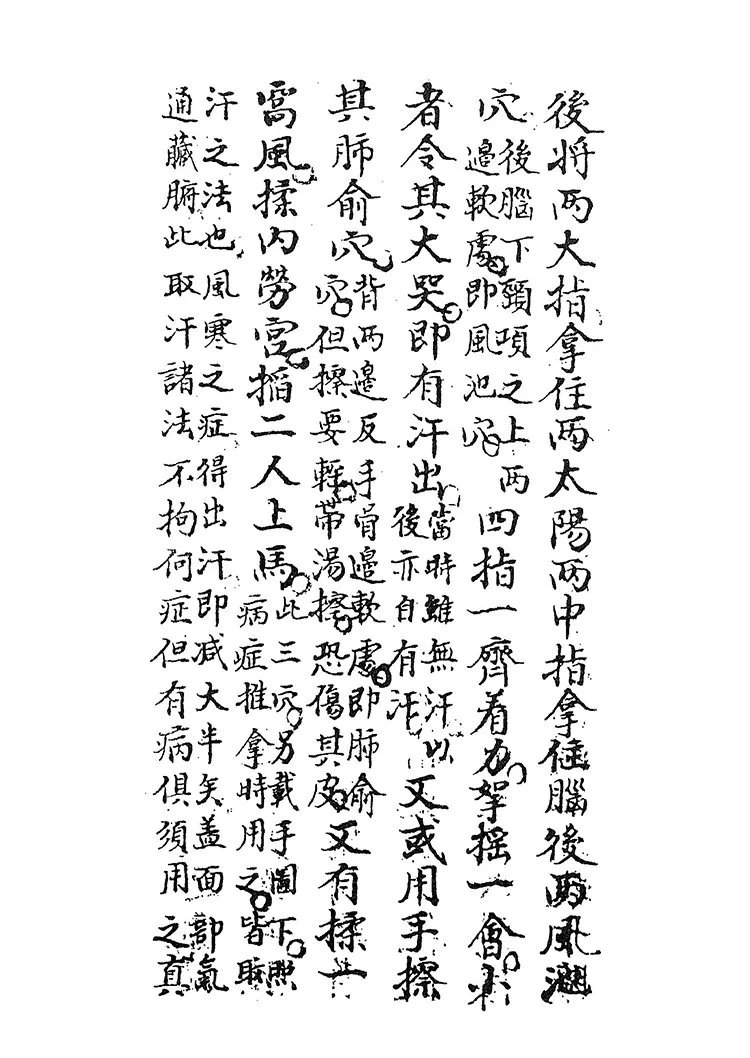 後将两大指拿住两太陽两中指拿住腦後两風池
穴
後腦下頸項之上两
邉軟處即風池穴
四指一齊着力拏摇一會小
者令其大哭即有汗出
當時雖無汗以
後亦自有汗
又或用手擦
其肺俞穴
背两邉反手骨邉軟處即肺俞
穴但擦要輕帯湯擦恐傷其皮
又有揉一
窩風揉内勞宫掐二人上馬
此三穴另載手圖下照
病症推拿時用之皆取
汗之法也風寒之症得出汗即减大半矣盖面部氣
通臟腑此取汗諸法不拘何症但有病俱須用之真